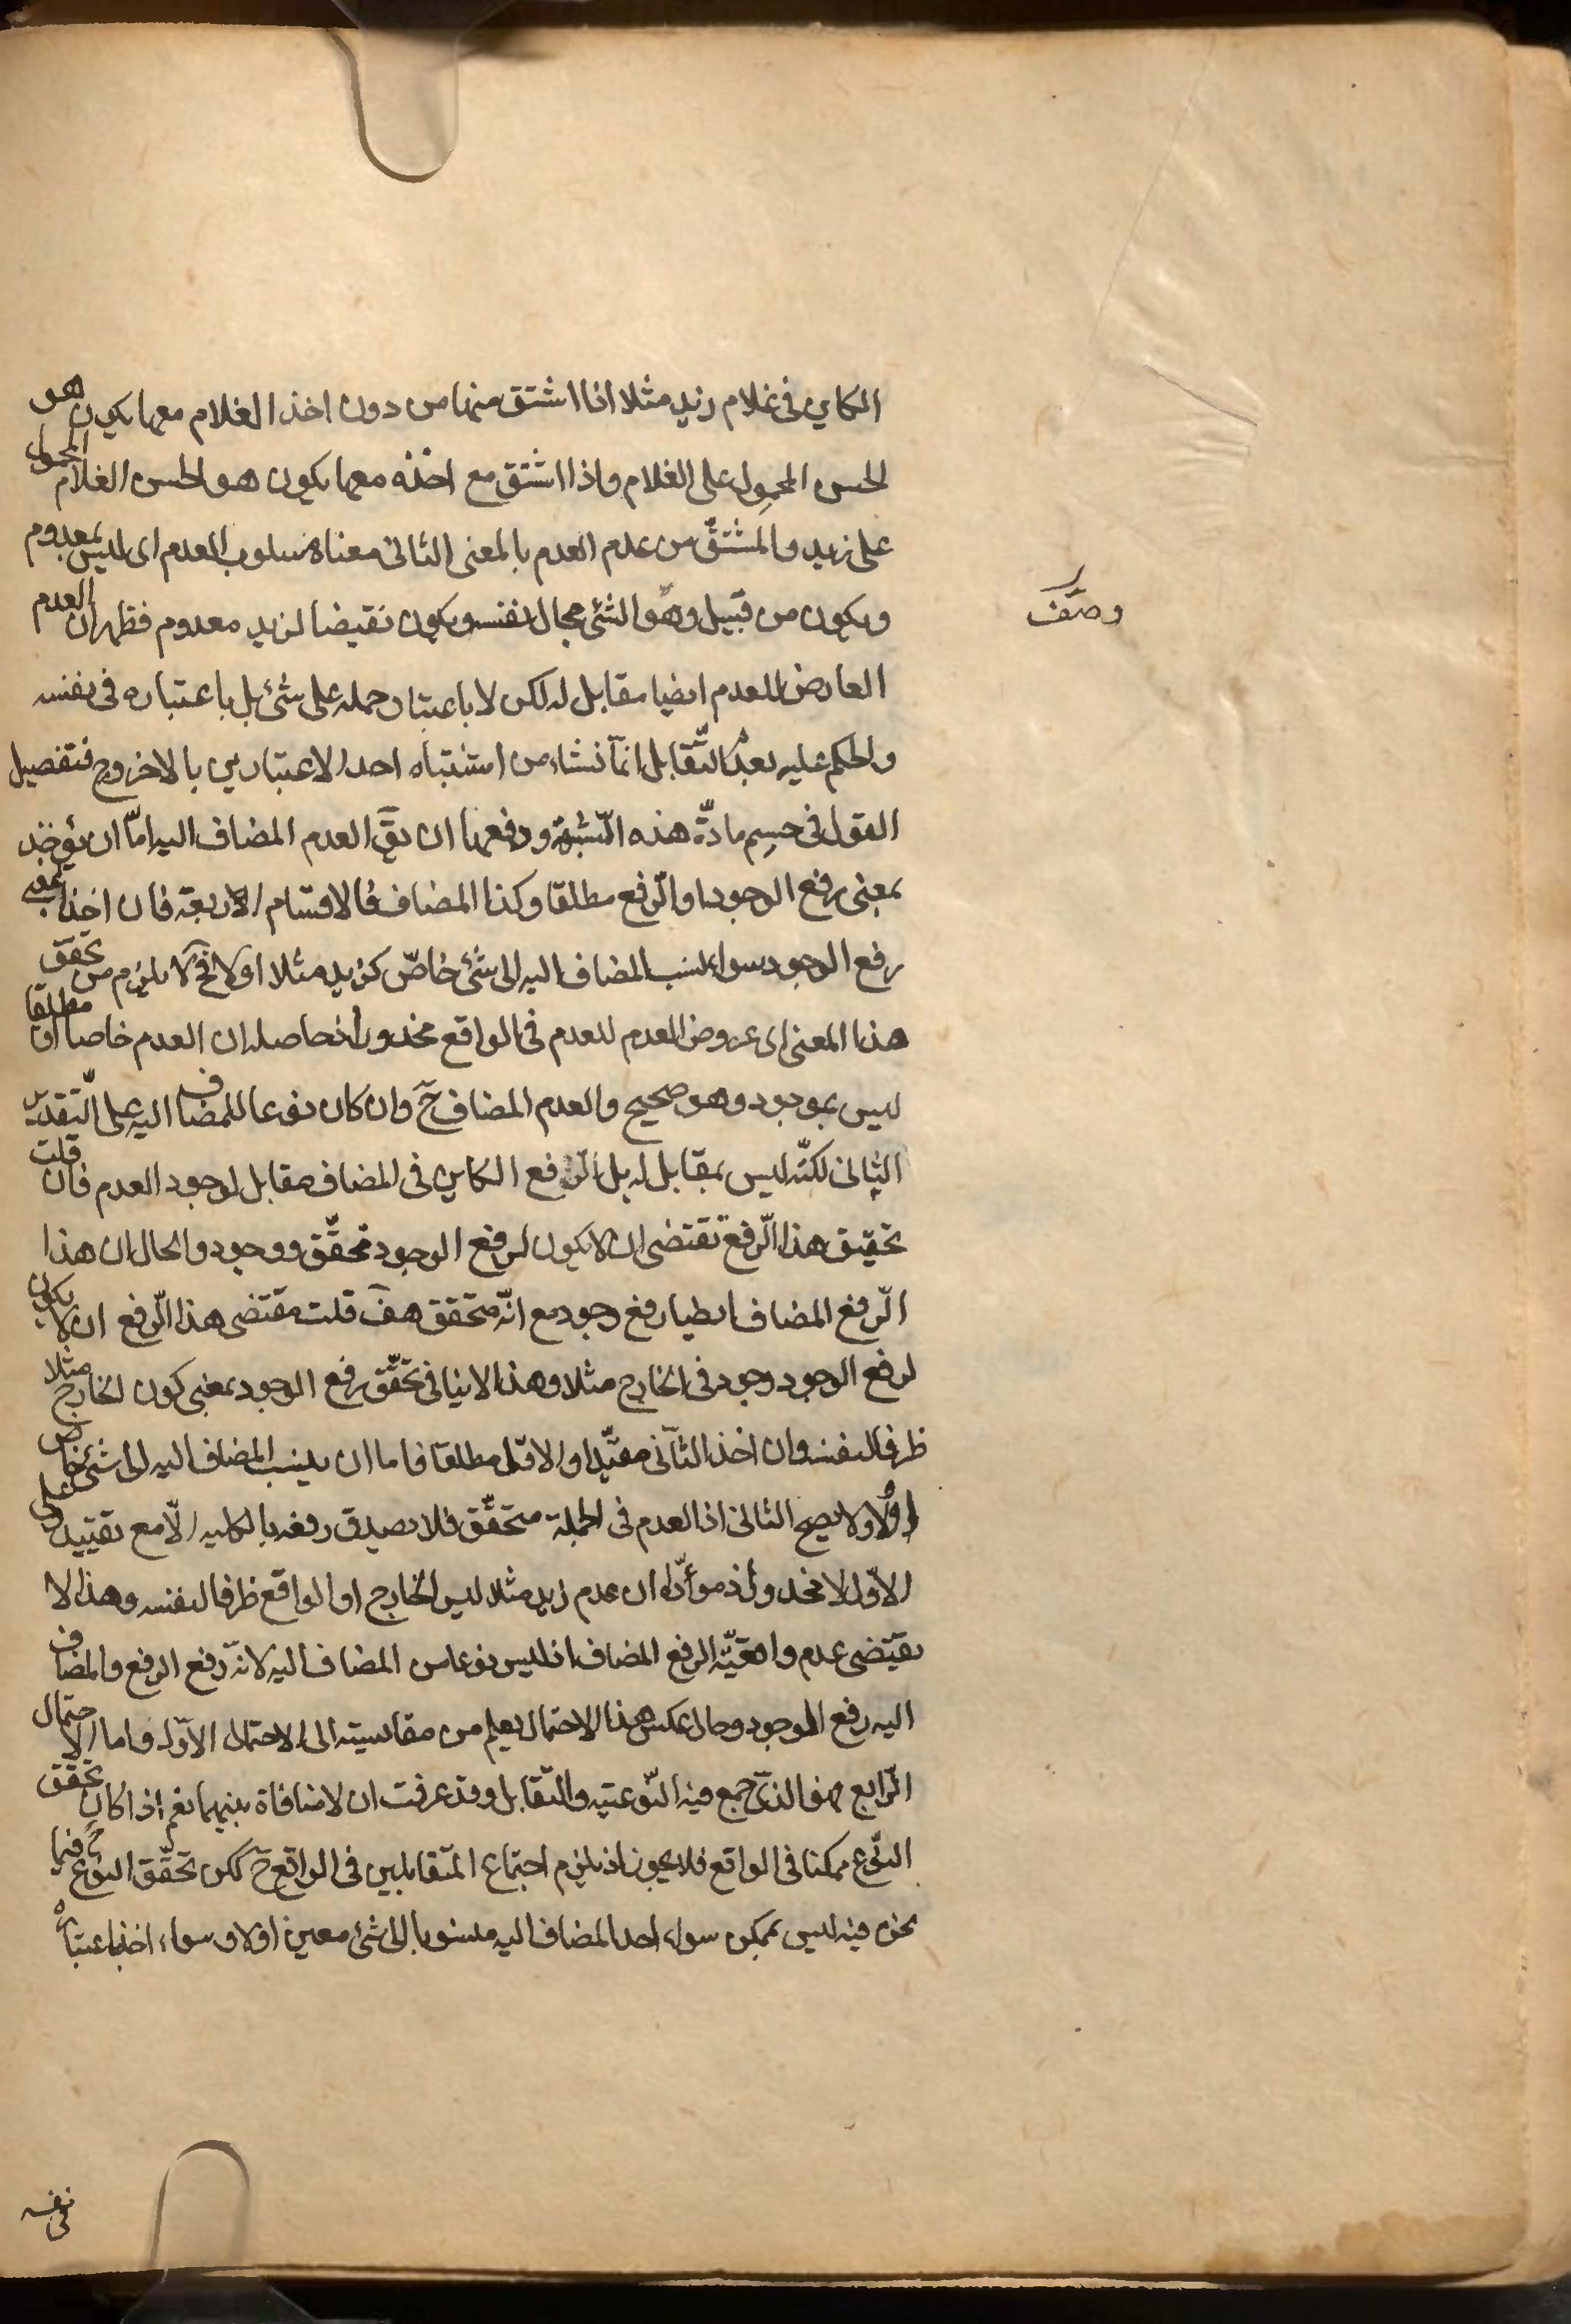 الكاين فى غلام زيد مثلا اذا اشتق منها من دون اخذ الغلام معها يكون هو
الحسن المحمول على الغلام واذا اشتق مع اخذه معها يكون هو الحسن الغلام المحمول
على زيد والمشتق من عدم العدم بالمعنى الثانى معناه مسلوب العدم اى ليس بمعدوم
ويكون من قبيل وصف الشئ بحال نفسه ويكون نقيضا لزيد معدوم فظهر ان العدم
العارض للعدم ايضا مقابل له لكن لا باعتبار حمله على شئ بل باعتباره فى نفسه
والحكم عليه بعدم التّقابل انّما نشاء من اشتباه احد الاعتبارين بالاخر وح فتفصيل
القول فى حسم مادّة هذه الشّبهة ودفعها ان يقَ العدم المضاف اليه امّا ان يؤخذ
بمعنى رفع الوجود او الرّفع مطلقا وكذا المضاف فالاقسام الاربعة فان اخذا بمعنى
رفع الوجود سواء نسب المضاف اليه الى شئ خاصّ كزيد مثلا او لا فحَ لا يلزم من تحقق
هذا المعنى اى عروض العدم للعدم فى الواقع محذور اذ حاصله ان العدم خاصا او مطلقا
ليس بموجود وهو صحيح والعدم المضاف حَ وان كان نوعا للمضاف اليه على التّقدير
الثانى لكنّه ليس بمقابل له بل الرّفع الكاين فى المضاف مقابل لوجود العدم فان قلت
تحقيق هذا الرّفع تقتضى ان لا يكون لرفع الوجود تحقّق ووجود والحال ان هذا
الرّفع المضاف ايضا رفع وجود مع انّه متحقق هفَ قلت مقتضى هذا الرّفع ان لا يكون
لرفع الوجود وجود فى الخارج مثلا وهذا لا ينافى تحقّق رفع الوجود بمعنى كون الخارج مثلا
ظرفا لنفسه وان اخذ الثّانى مقيّدا والاوّل مطلقا فاما ان ينسب المضاف اليه الى شئ خاص
اولا ولا يصح الثانى اذ العدم فى الجملة متحقّق فلا يصدق رفعه بالكليه الّا مع تقييد وعلى
الاوّل لا محذور اذ موءدّاه ان عدم زيد مثلا ليس الخارج او الواقع ظرفا لنفسه وهذا لا
يقتضى عدم واقعيّة الرفع المضاف اذ ليس نوعا من المضاف اليه لانّه رفع الرفع والمضاف
اليه رفع الوجود وحال عكس هذا الاحتمال يعلم من مقايسته الى الاحتمال الاوّل واما الاحتمال
الرّابع فهو الذى جمع فيه النّوعيّه والتّقابل وقد عرفت ان لا منافاة بينهما نعم اذا كان تحقق
النّوع ممكنا فى الواقع فلا يجوز اذ يلزم اجتماع المتقابلين فى الواقع حَ لكن تحقّق النوع حَ فيما
نحن فيه ليس بممكن سواء اخذ المضاف اليه منسوبا الى شئ معين او لا وسواء اخذ باعتباره
وصف
فى نفسه